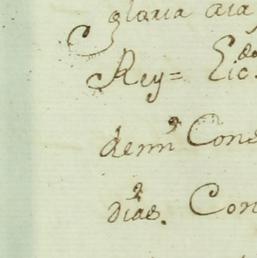 gloria a la
Rey = Lic.do
denn.s Cons
dias. Con